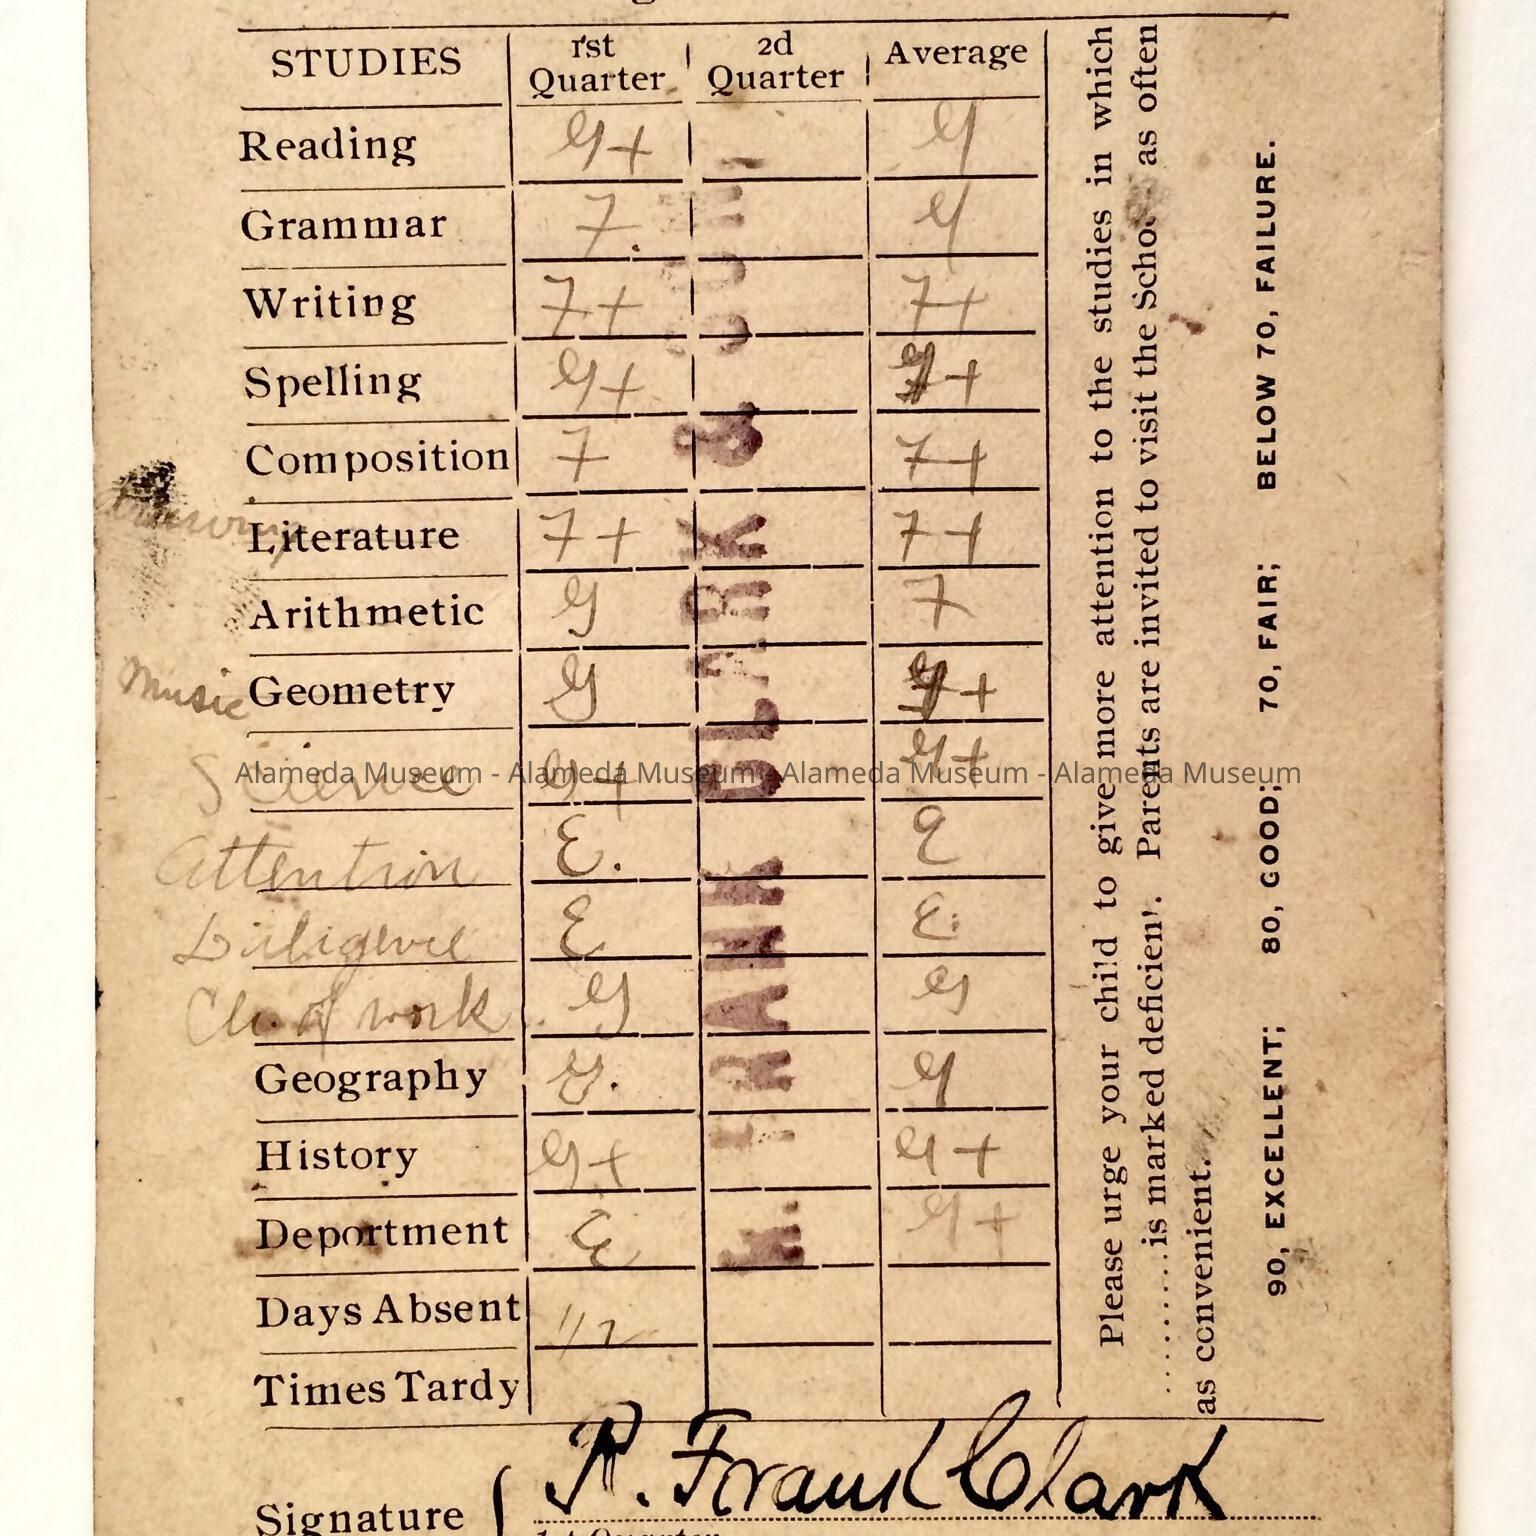 STUDIES 1st Quarter 2d Quarter Average
Reading G+ G
Grammar F. G
Writing F+ F+
Spelling G+ +
Composition F F+
Literature F+ F+
Arithmetic G F
Music
Geometry G +
Science G+ G+
Attention E. E
Diligence E E.
of work G G
Geography G. G
History G+ G+
Deportment E G+
Days Absent 1/2
Times Tardy
Signature { P. Frank Clark
1st Quarter
Please urge your child to give more attention to the studies in which
.........is marked deficient. Parents are invited to visit the School as often
as convenient.
90, EXCELLENT; 80, GOOD; 70, FAIR; BELOW 70, FAILURE.
FRANK CLARK &
Alameda Museum - Alameda Museum - Alameda Museum - Alameda Museum